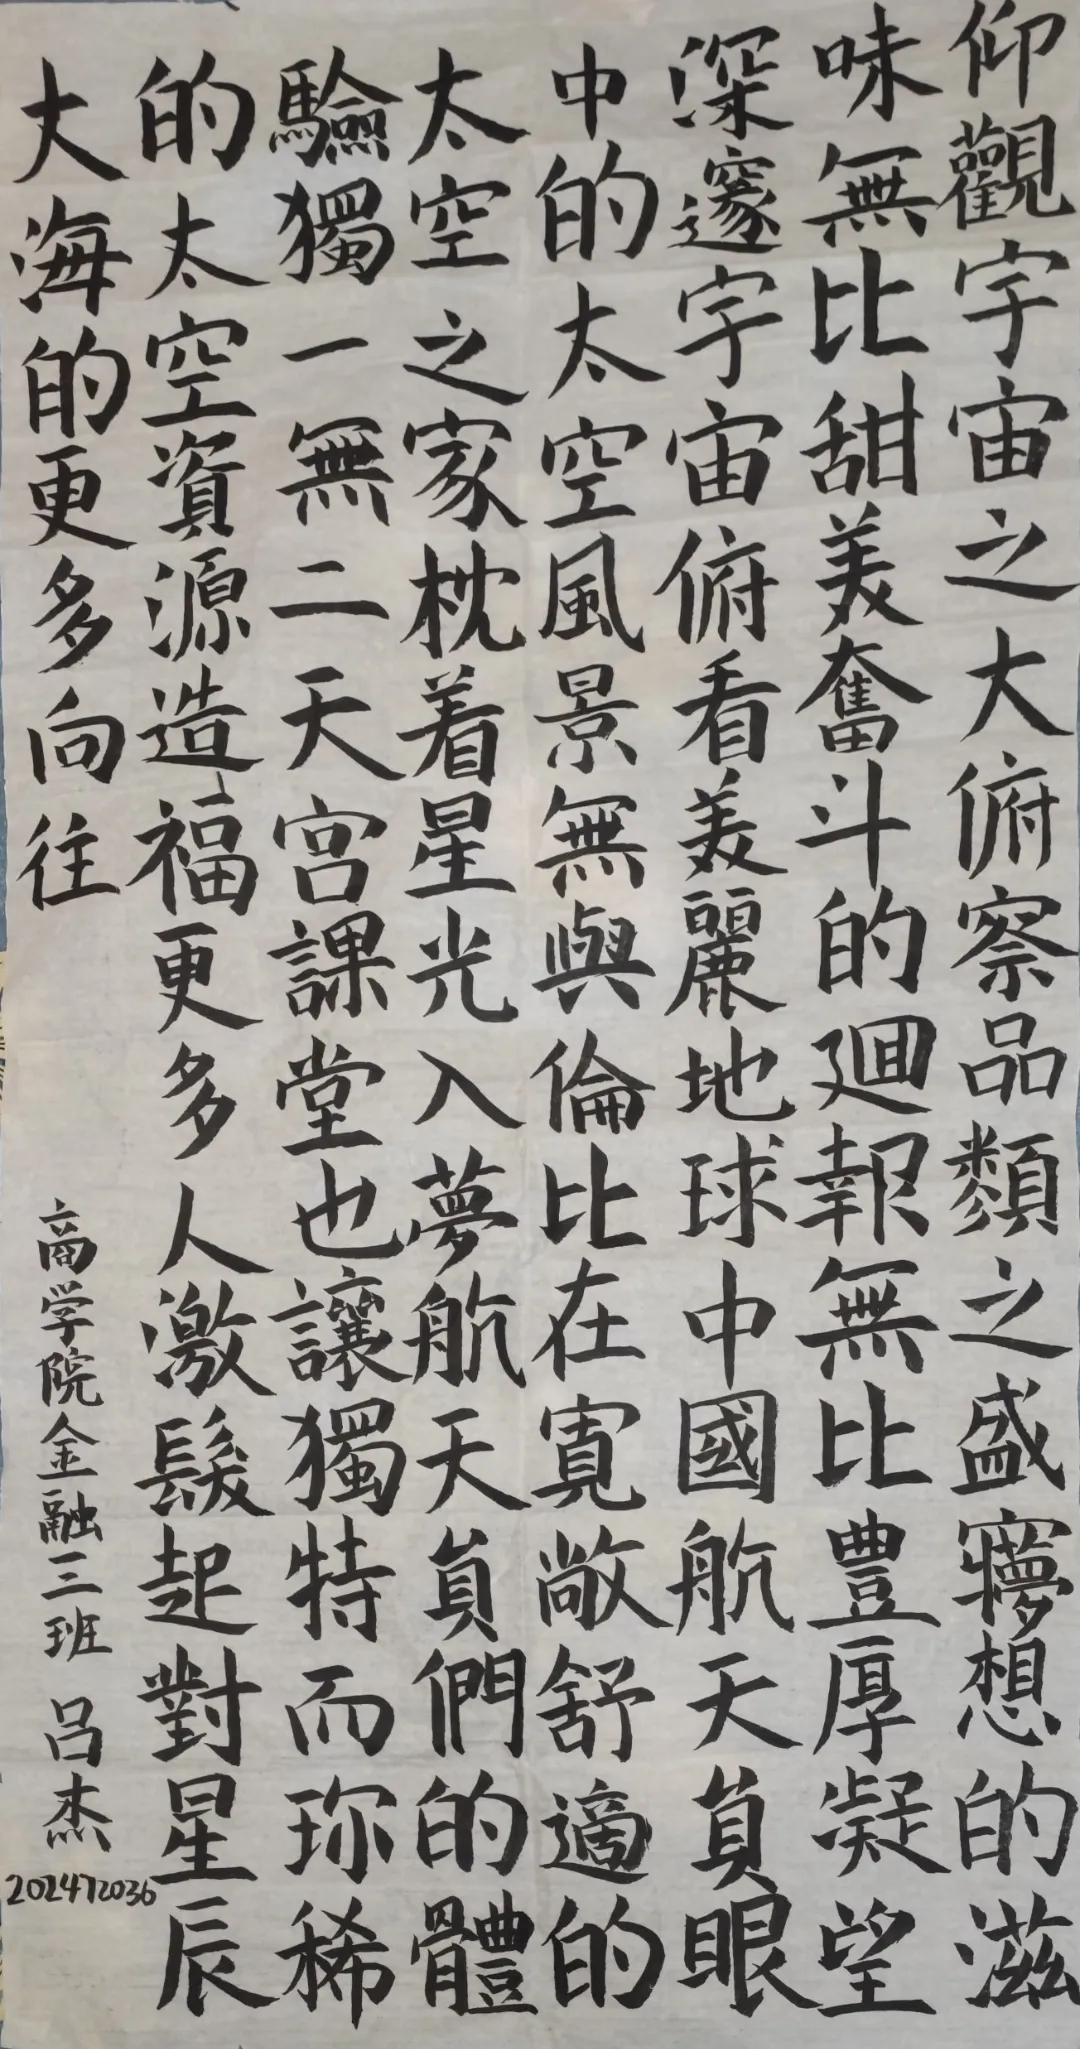 仰觀宇宙之大俯察品類之盛寱想的滋
味無比甜美奮斗的廻報無比豊厚凝望
深邃宇宙俯看美麗地球中國航天員眼
中的太空風景無與倫比在寛敞舒適的
太空之家枕着星光入夢航天員們的體
驗獨一無二天宮課堂也讓獨特而珎稀
的太空資源造福更多人激髮起對星辰
大海的更多向往
商学院金融三班 吕杰
202472036